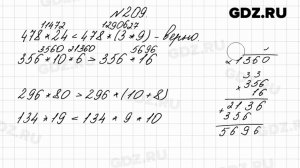 №209
GDZ.RU
11472 1290627
478 * 24 < 478 * (3 * 9) - верно.
3560 21360 5696
356 * 10 * 6 > 356 * 16
296 * 80 > 296 * (10 + 8)
134 * 19 < 134 * 9 * 10
1360
33
× 356
16
+ 2136
356
5696
GDZ.RU